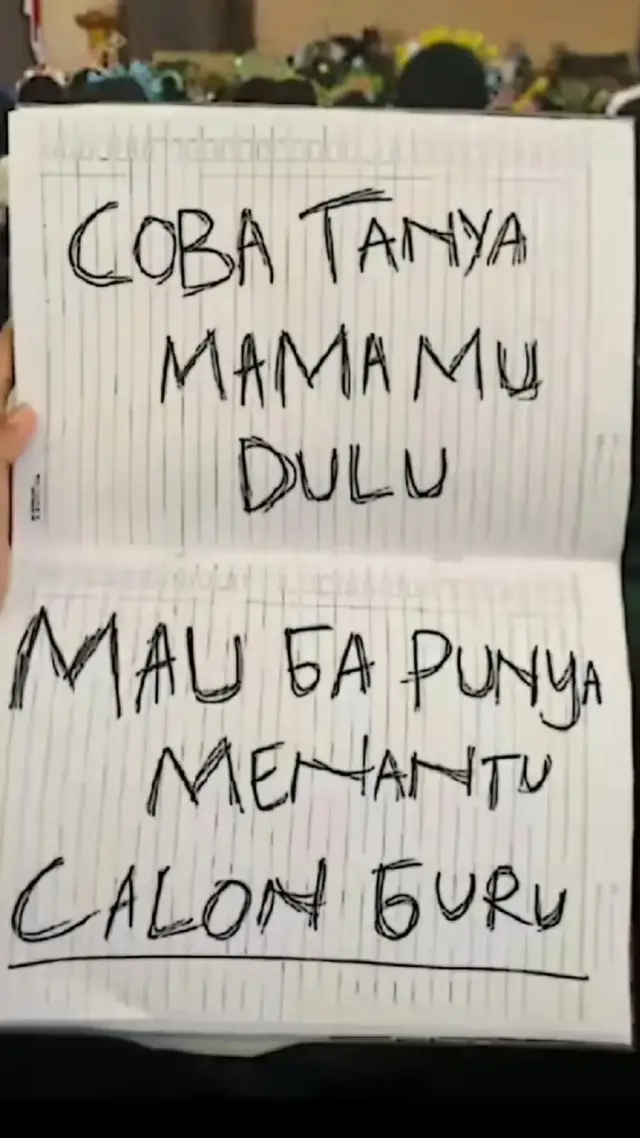 COBA TANYA
MAMAMU
DULU
MAU GA PUNYA
MENANTU
CALON GURU